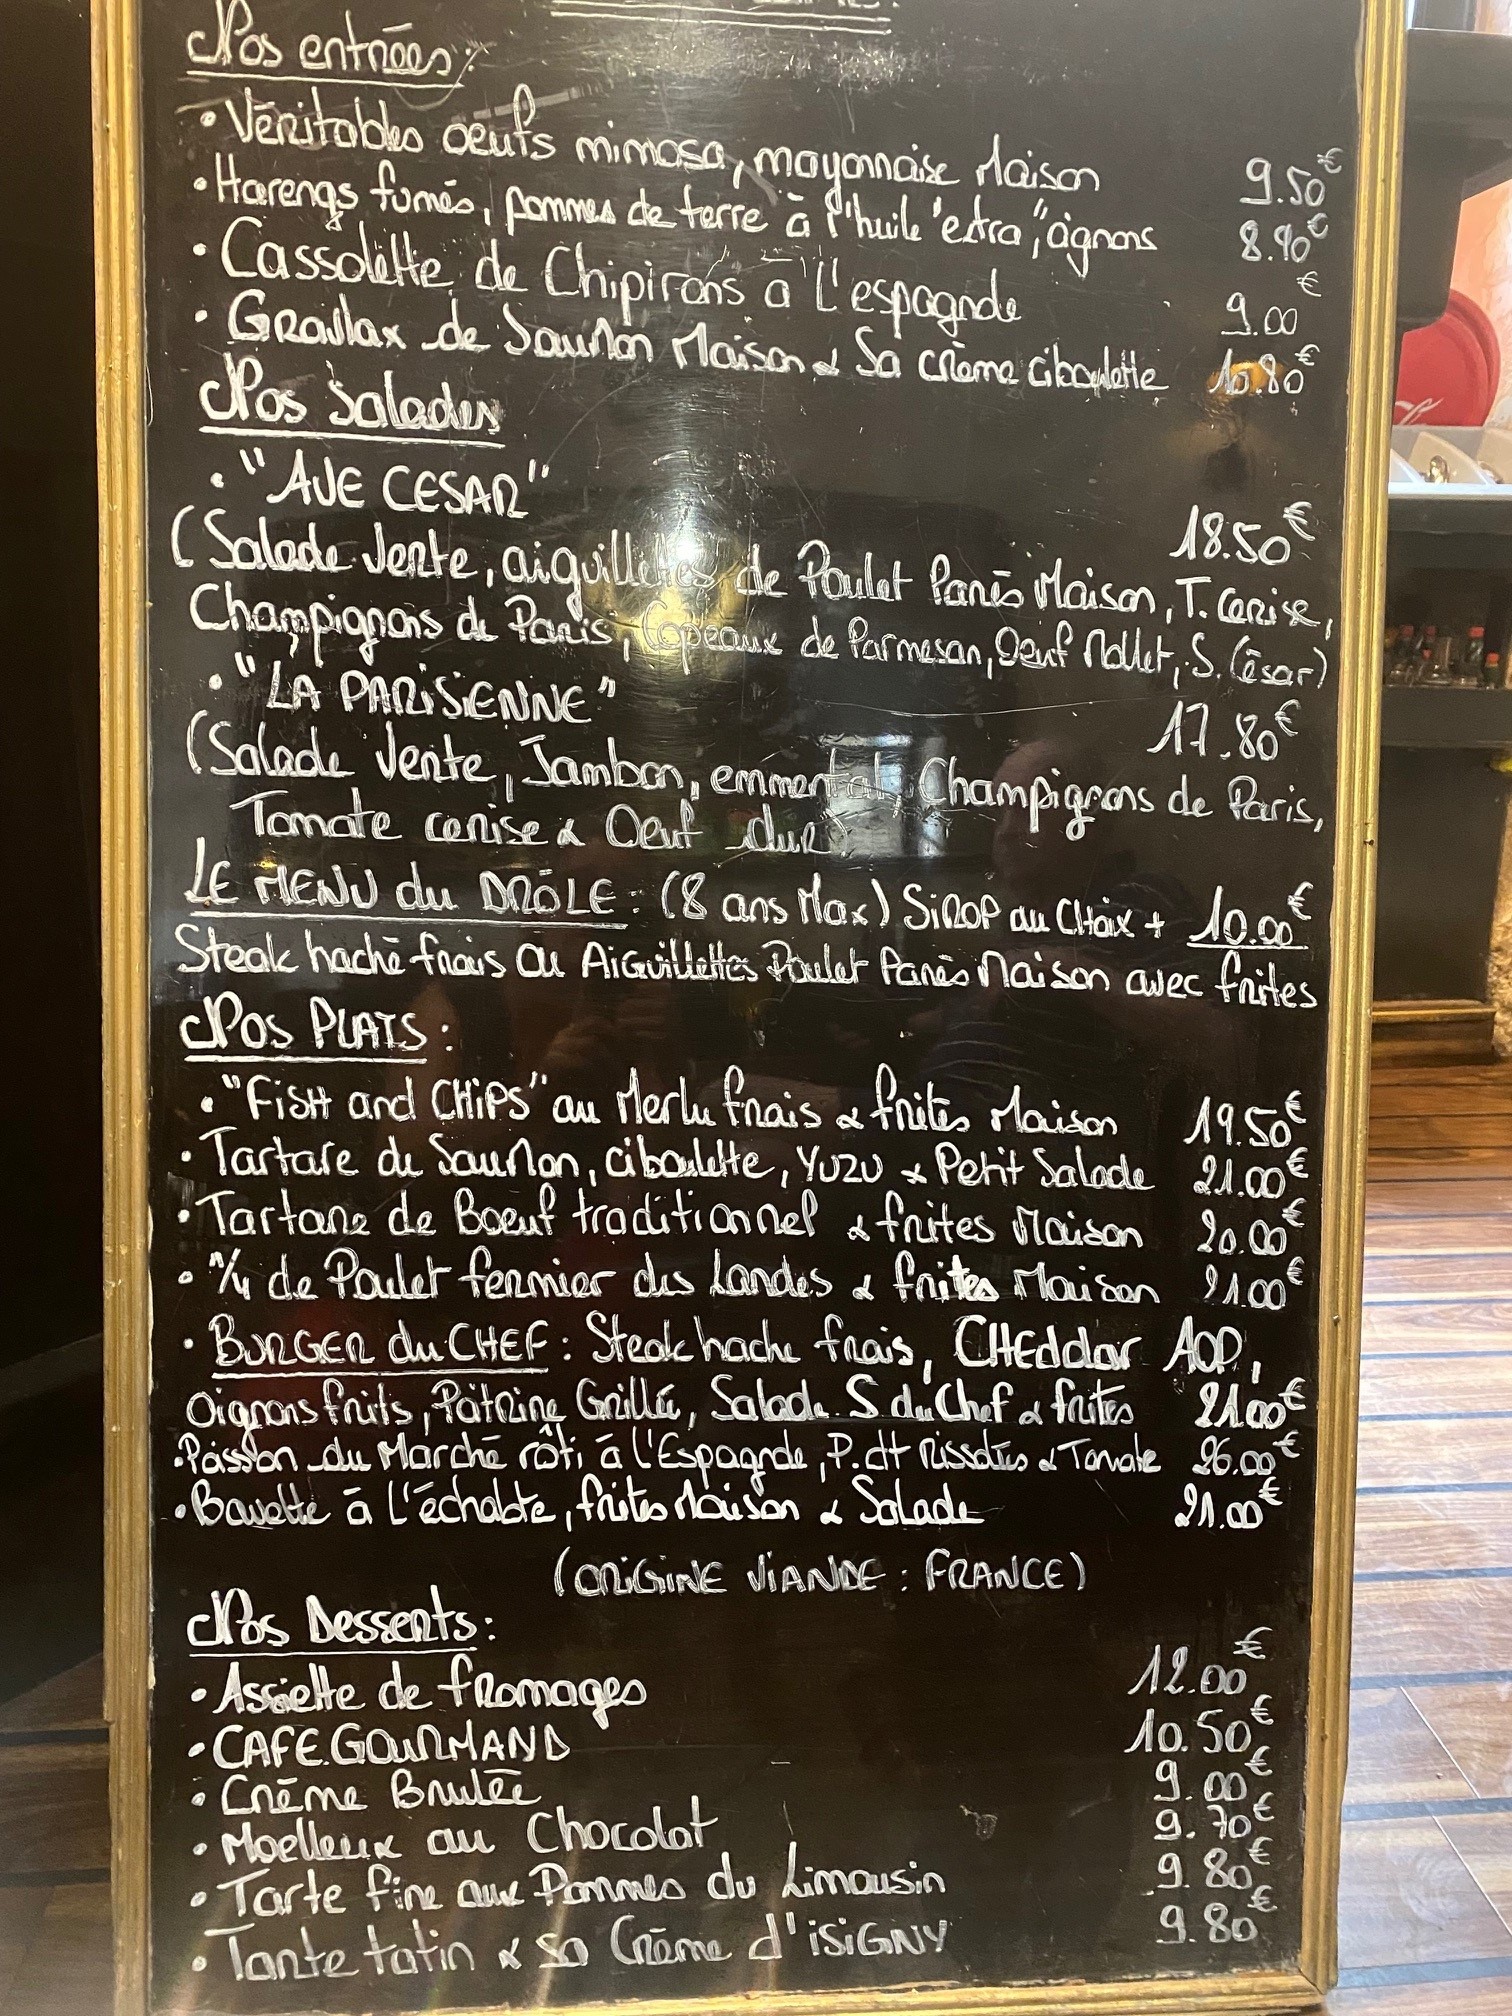 Nos entrées:
• Véritables oeufs mimosa, mayonnaise Maison 9.50€
• Harengs fumés, pommes de terre à l'huile "extra", oignons 8.90€
• Cassolette de Chipirons à l'espagnole 9.00€
• Gravlax de Saumon Maison & Sa crème ciboulette 10.80€
Nos Salades
• "AVE CESAR" 18.50€
(Salade Verte, aiguillettes de Poulet Panés Maison, T. Cerise,
Champignons de Paris, Copeaux de Parmesan, Oeuf Mollet, S. César)
• "LA PARISIENNE" 17.80€
(Salade Verte, Jambon, emmental, Champignons de Paris,
Tomate cerise & Oeuf dur)
LE MENU du DRÔLE : (8 ans Max) SIROP au CHoix + 10.00€
Steak haché frais OU AIGUillettes Poulet Panés Maison avec frites
Nos PLATS :
• "FISH and CHIPS" au Merlu frais & frites Maison 19.50€
• Tartare de Saumon, ciboulette, YUZU & Petit Salade 21.00€
• Tartare de Boeuf traditionnel & frites Maison 20.00€
• 1/4 de Poulet fermier des Landes & frites Maison 21.00€
• BURGER du CHEF : Steak haché frais, CHEddar AOP,
Oignons frits, Poitrine Grillée, Salade. S. du Chef & frites 21.00€
• Poisson du Marché rôti à l'Espagnole, P. dt Rissolées & Tomate 26.00€
• Bavette à l'échalote, frites Maison & Salade 21.00€
(ORIGINE VIANDE : FRANCE)
Nos Desserts :
• Assiette de fromages 12.00€
• CAFE.GOURMAND 10.50€
• Crème Brulée 9.00€
• Moelleux au Chocolat 9.70€
• Tarte fine aux Pommes du Limousin 9.80€
• Tarte tatin & sa Crème d'ISIGNY 9.80€